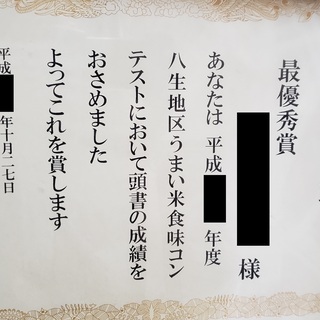 最優秀賞
様
あなたは 平成 年度
八生地区うまい米食味コン
テストにおいて頭書の成績を
おさめました
よってこれを賞します
平成 年十月二七日